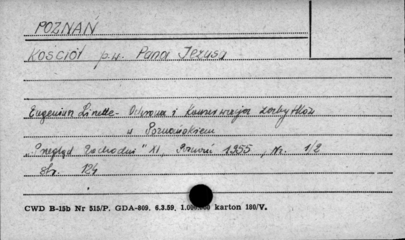 POZNAŃ
KOŚCIÓŁ p.w. Pana Jezusa
Eugeniusz Linette - Ochrona i Konserwacja zabytków
w Poznańskiem
"Przegląd Zachodni" XI, Poznań 1955, Nr. 1/2
str. 124
CWD B-15b Nr 515/P. GDA-809. 6.3.59, karton 180/V.